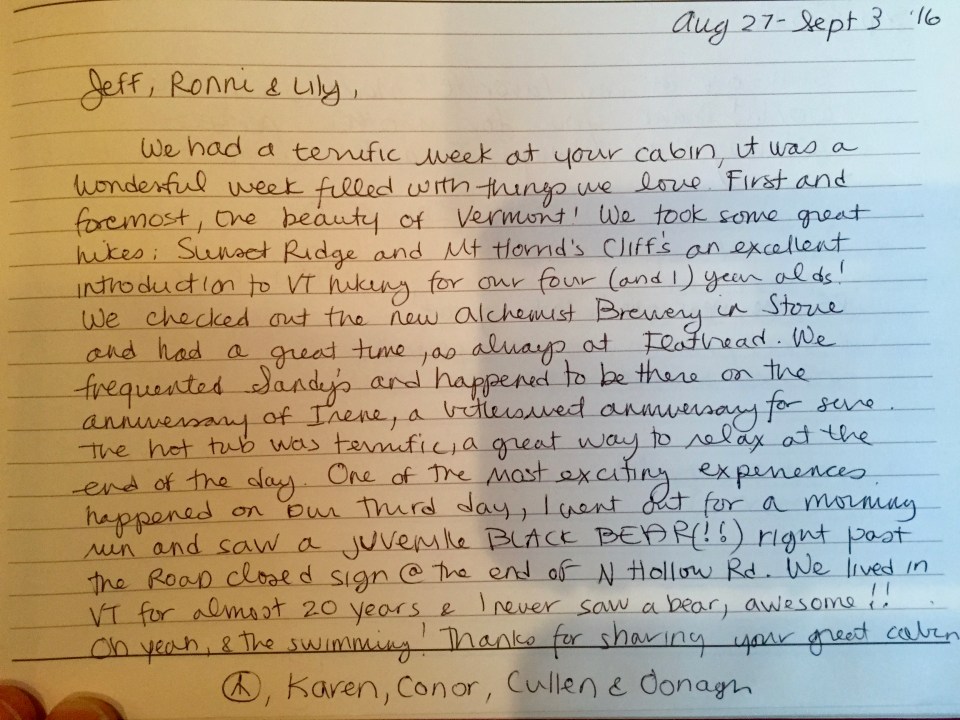 Aug 27 - Sept 3 '16
Jeff, Ronni & Lily,
We had a terrific week at your cabin, it was a
wonderful week filled with things we love. First and
foremost, the beauty of Vermont! We took some great
hikes: Sunset Ridge and Mt Hornd's Cliff's an excellent
introduction to VT hiking for our four (and 1) year olds!
We checked out the new Alchemist Brewery in Stowe
and had a great time, as always at Feathead. We
frequented Sandy's and happened to be there on the
anniversary of Irene, a bittersweet anniversary for sure.
The hot tub was terrific, a great way to relax at the
end of the day. One of the most exciting experiences
happened on our third day, I went out for a morning
run and saw a juvenille BLACK BEAR(!!) right past
the ROAD closed sign @ the end of N Hollow Rd. We lived in
VT for almost 20 years & I never saw a bear, awesome!!
Oh yeah, & the swimming! Thanks for sharing your great cabin
Karen, Conor, Cullen & Oonagh